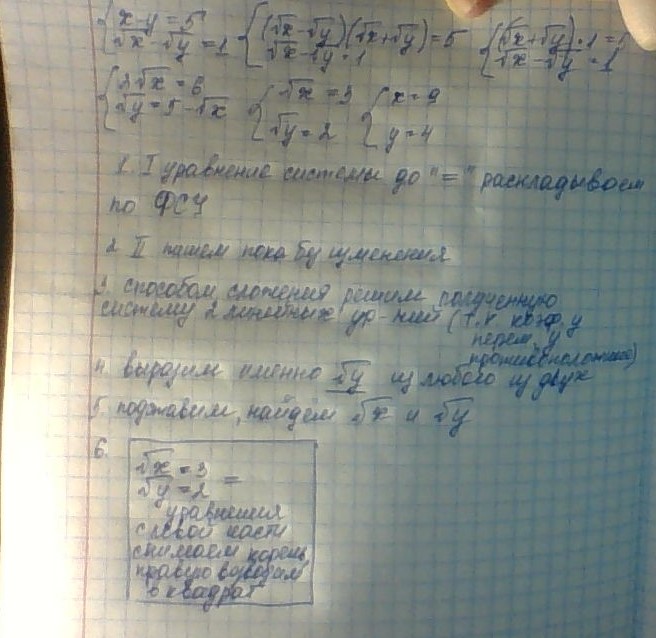 {x-y=5 {(√x-√y)(√x+√y)=5 {(√x+√y)·1=5
√x-√y=1 √x-√y=1 √x-√y=1
{2√x=6 {√x=3 {x=9
√y=5-√x √y=2 y=4
1. I уравнение системы до "=" раскладываем
по ФСУ
2. II пишем пока без изменения
3. способом сложения решим полученную
систему 2 линейных ур-ний (т.к коэф. у
перем. у
противоположные)
4. выразим именно √y из любого из двух
5. подставим, найдём √x и √y
6.
√x=3
√y=2 =
уравнения
с левой части
снимаем корень,
правую возводим
в квадрат